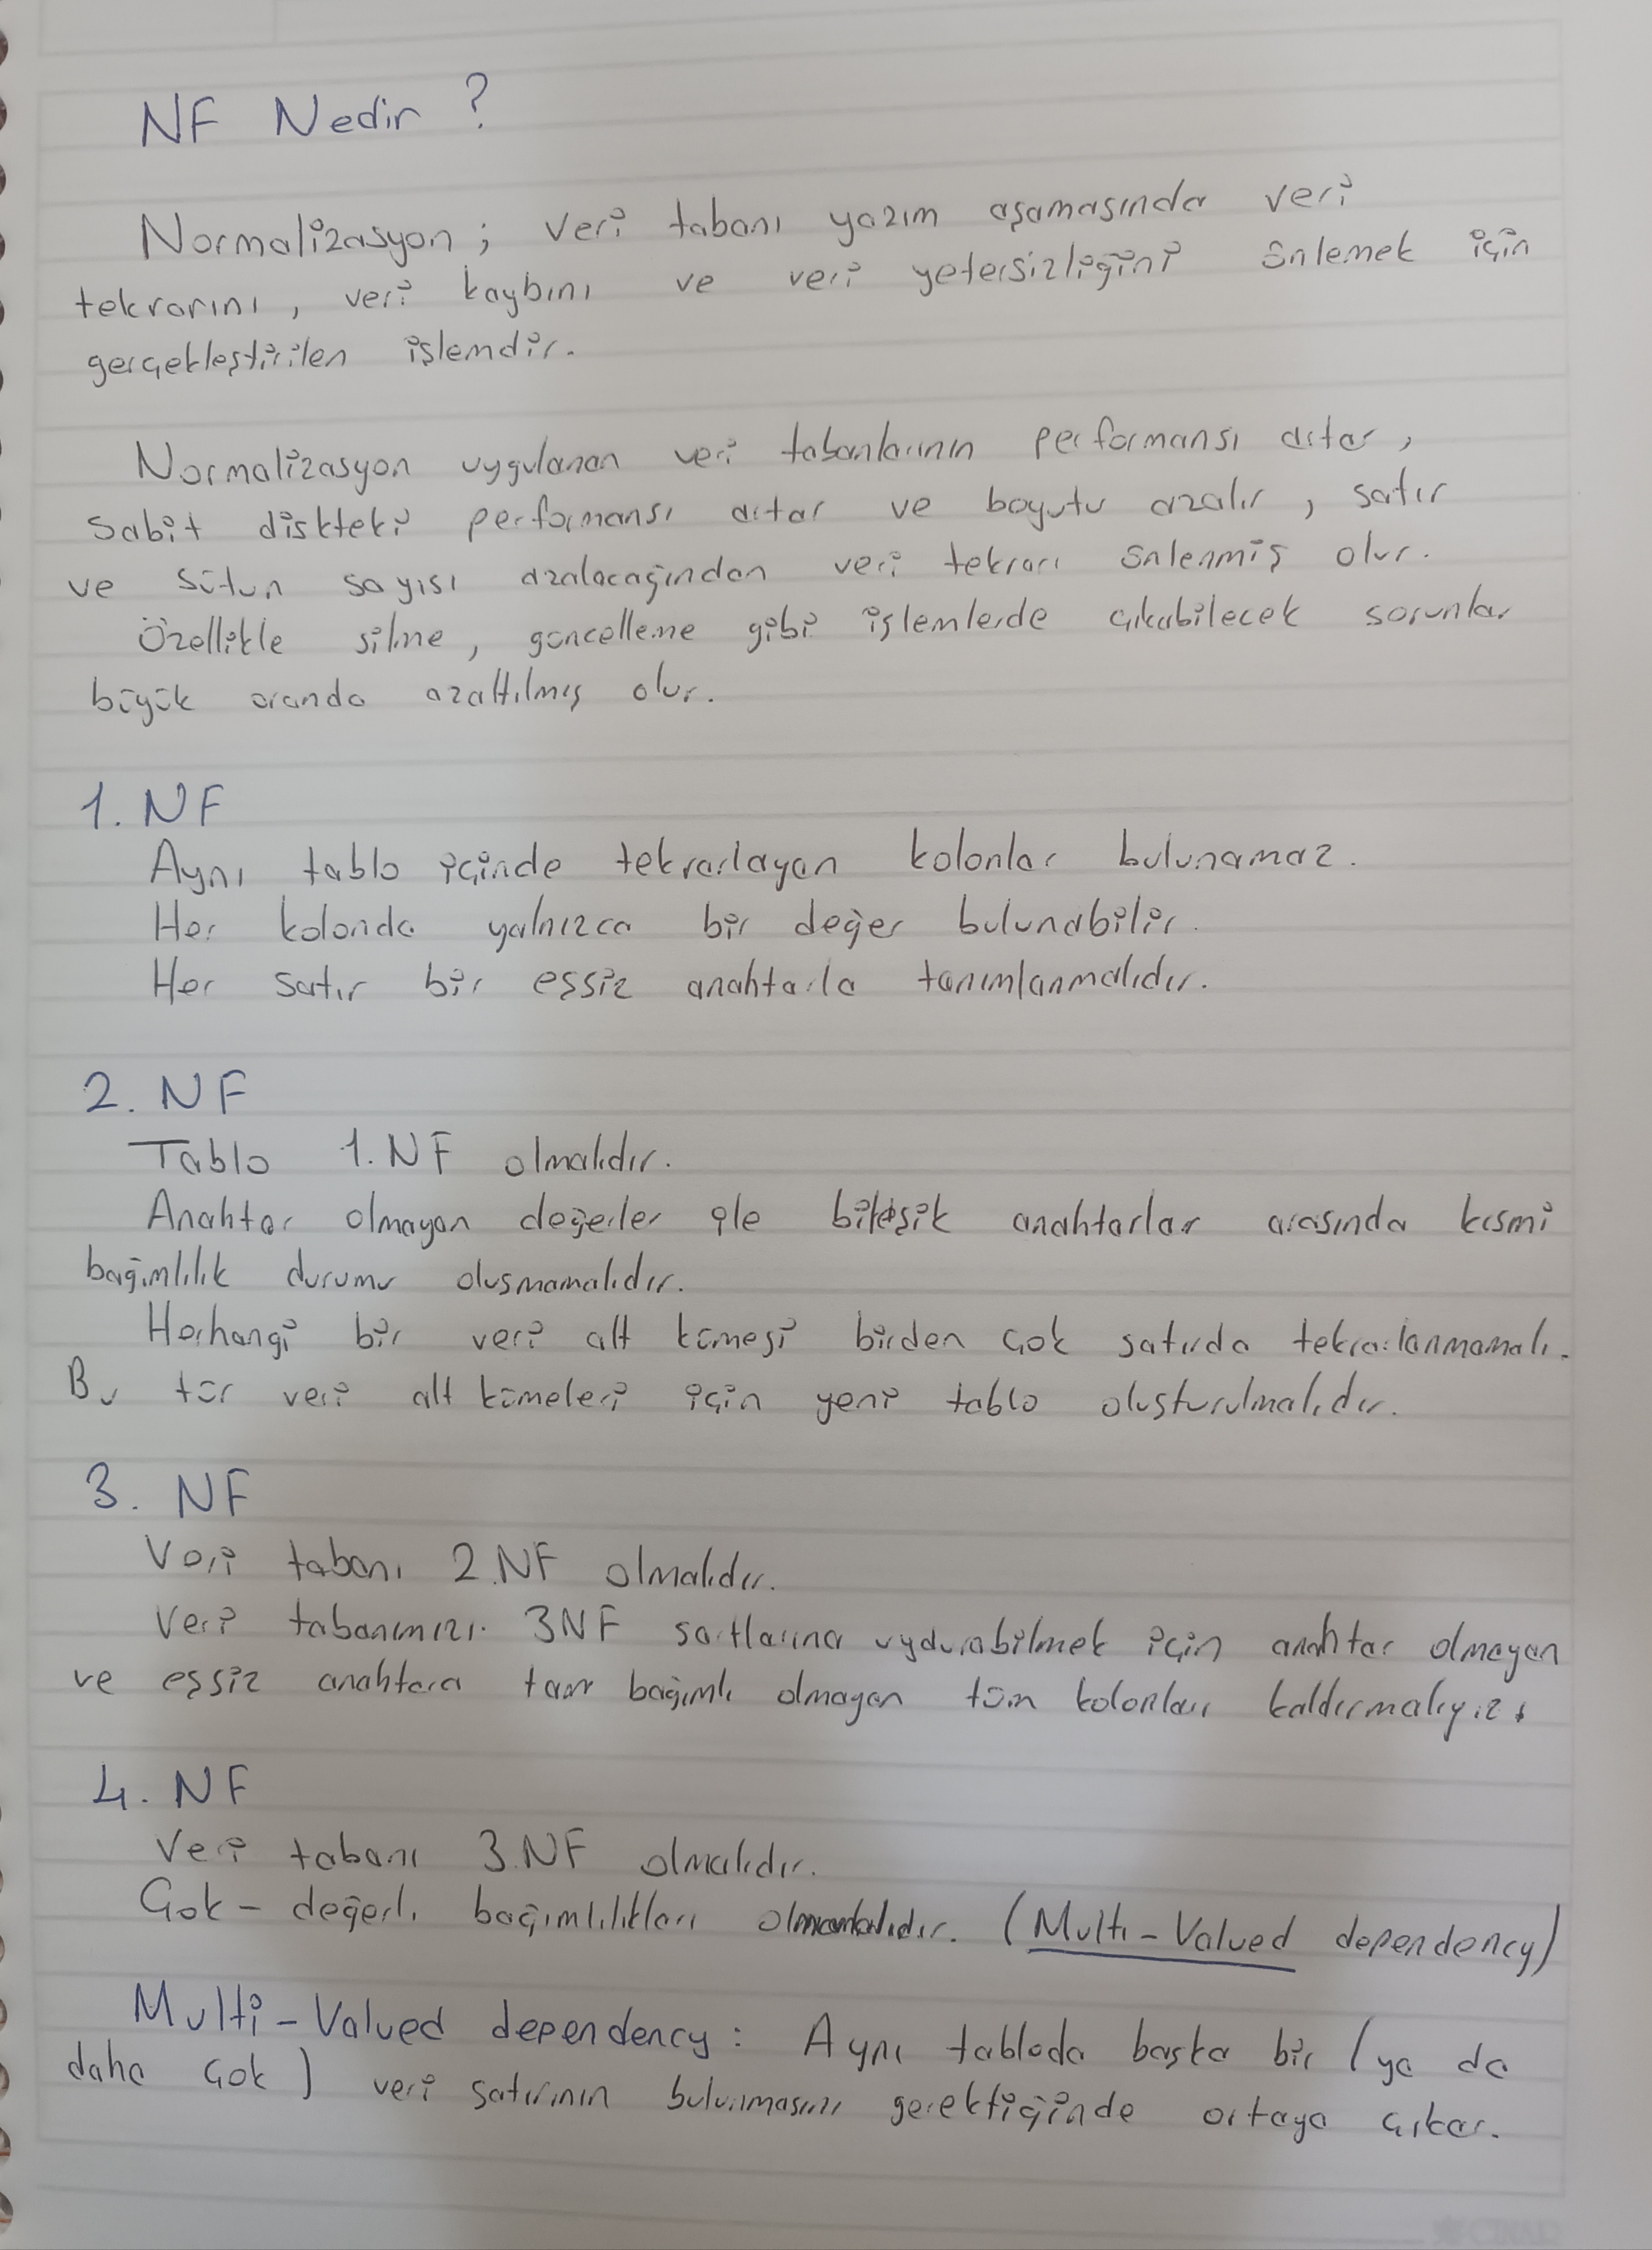 NF Nedir ?
Normalizasyon ; veri tabanı yazım aşamasında veri
tekrarını , veri kaybını ve veri yetersizliğini önlemek için
gerçekleştirilen işlemdir.
Normalizasyon uygulanan veri tabanlarının performansı artar ,
sabit diskteki performansı artar ve boyutu azalır , satır
ve sütun sayısı azalacağından veri tekrarı önlenmiş olur.
Özellikle silme , güncelleme gibi işlemlerde çıkabilecek sorunlar
büyük oranda azaltılmış olur.
1. NF
Aynı tablo içinde tekrarlayan kolonlar bulunamaz.
Her kolonda yalnızca bir değer bulunabilir.
Her satır bir eşsiz anahtarla tanımlanmalıdır.
2. NF
Tablo 1. NF olmalıdır.
Anahtar olmayan değerler ile bileşik anahtarlar arasında kısmi
bağımlılık durumu oluşmamalıdır.
Herhangi bir veri alt kümesi birden çok satırda tekrarlanmamalı.
Bu tür veri alt kümeleri için yeni tablo oluşturulmalıdır.
3. NF
Veri tabanı 2.NF olmalıdır.
Veri tabanımızı 3NF şartlarına uydurabilmek için anahtar olmayan
ve eşsiz anahtara tam bağımlı olmayan tüm kolonları kaldırmalıyız.
4. NF
Veri tabanı 3.NF olmalıdır.
Çok - değerli bağımlılıkları olmamalıdır. (Multi - Valued dependency)
Multi - Valued dependency : Aynı tabloda başka bir (ya da
daha çok) veri satırının bulunmasını gerektiğinde ortaya çıkar.
ÇINAR